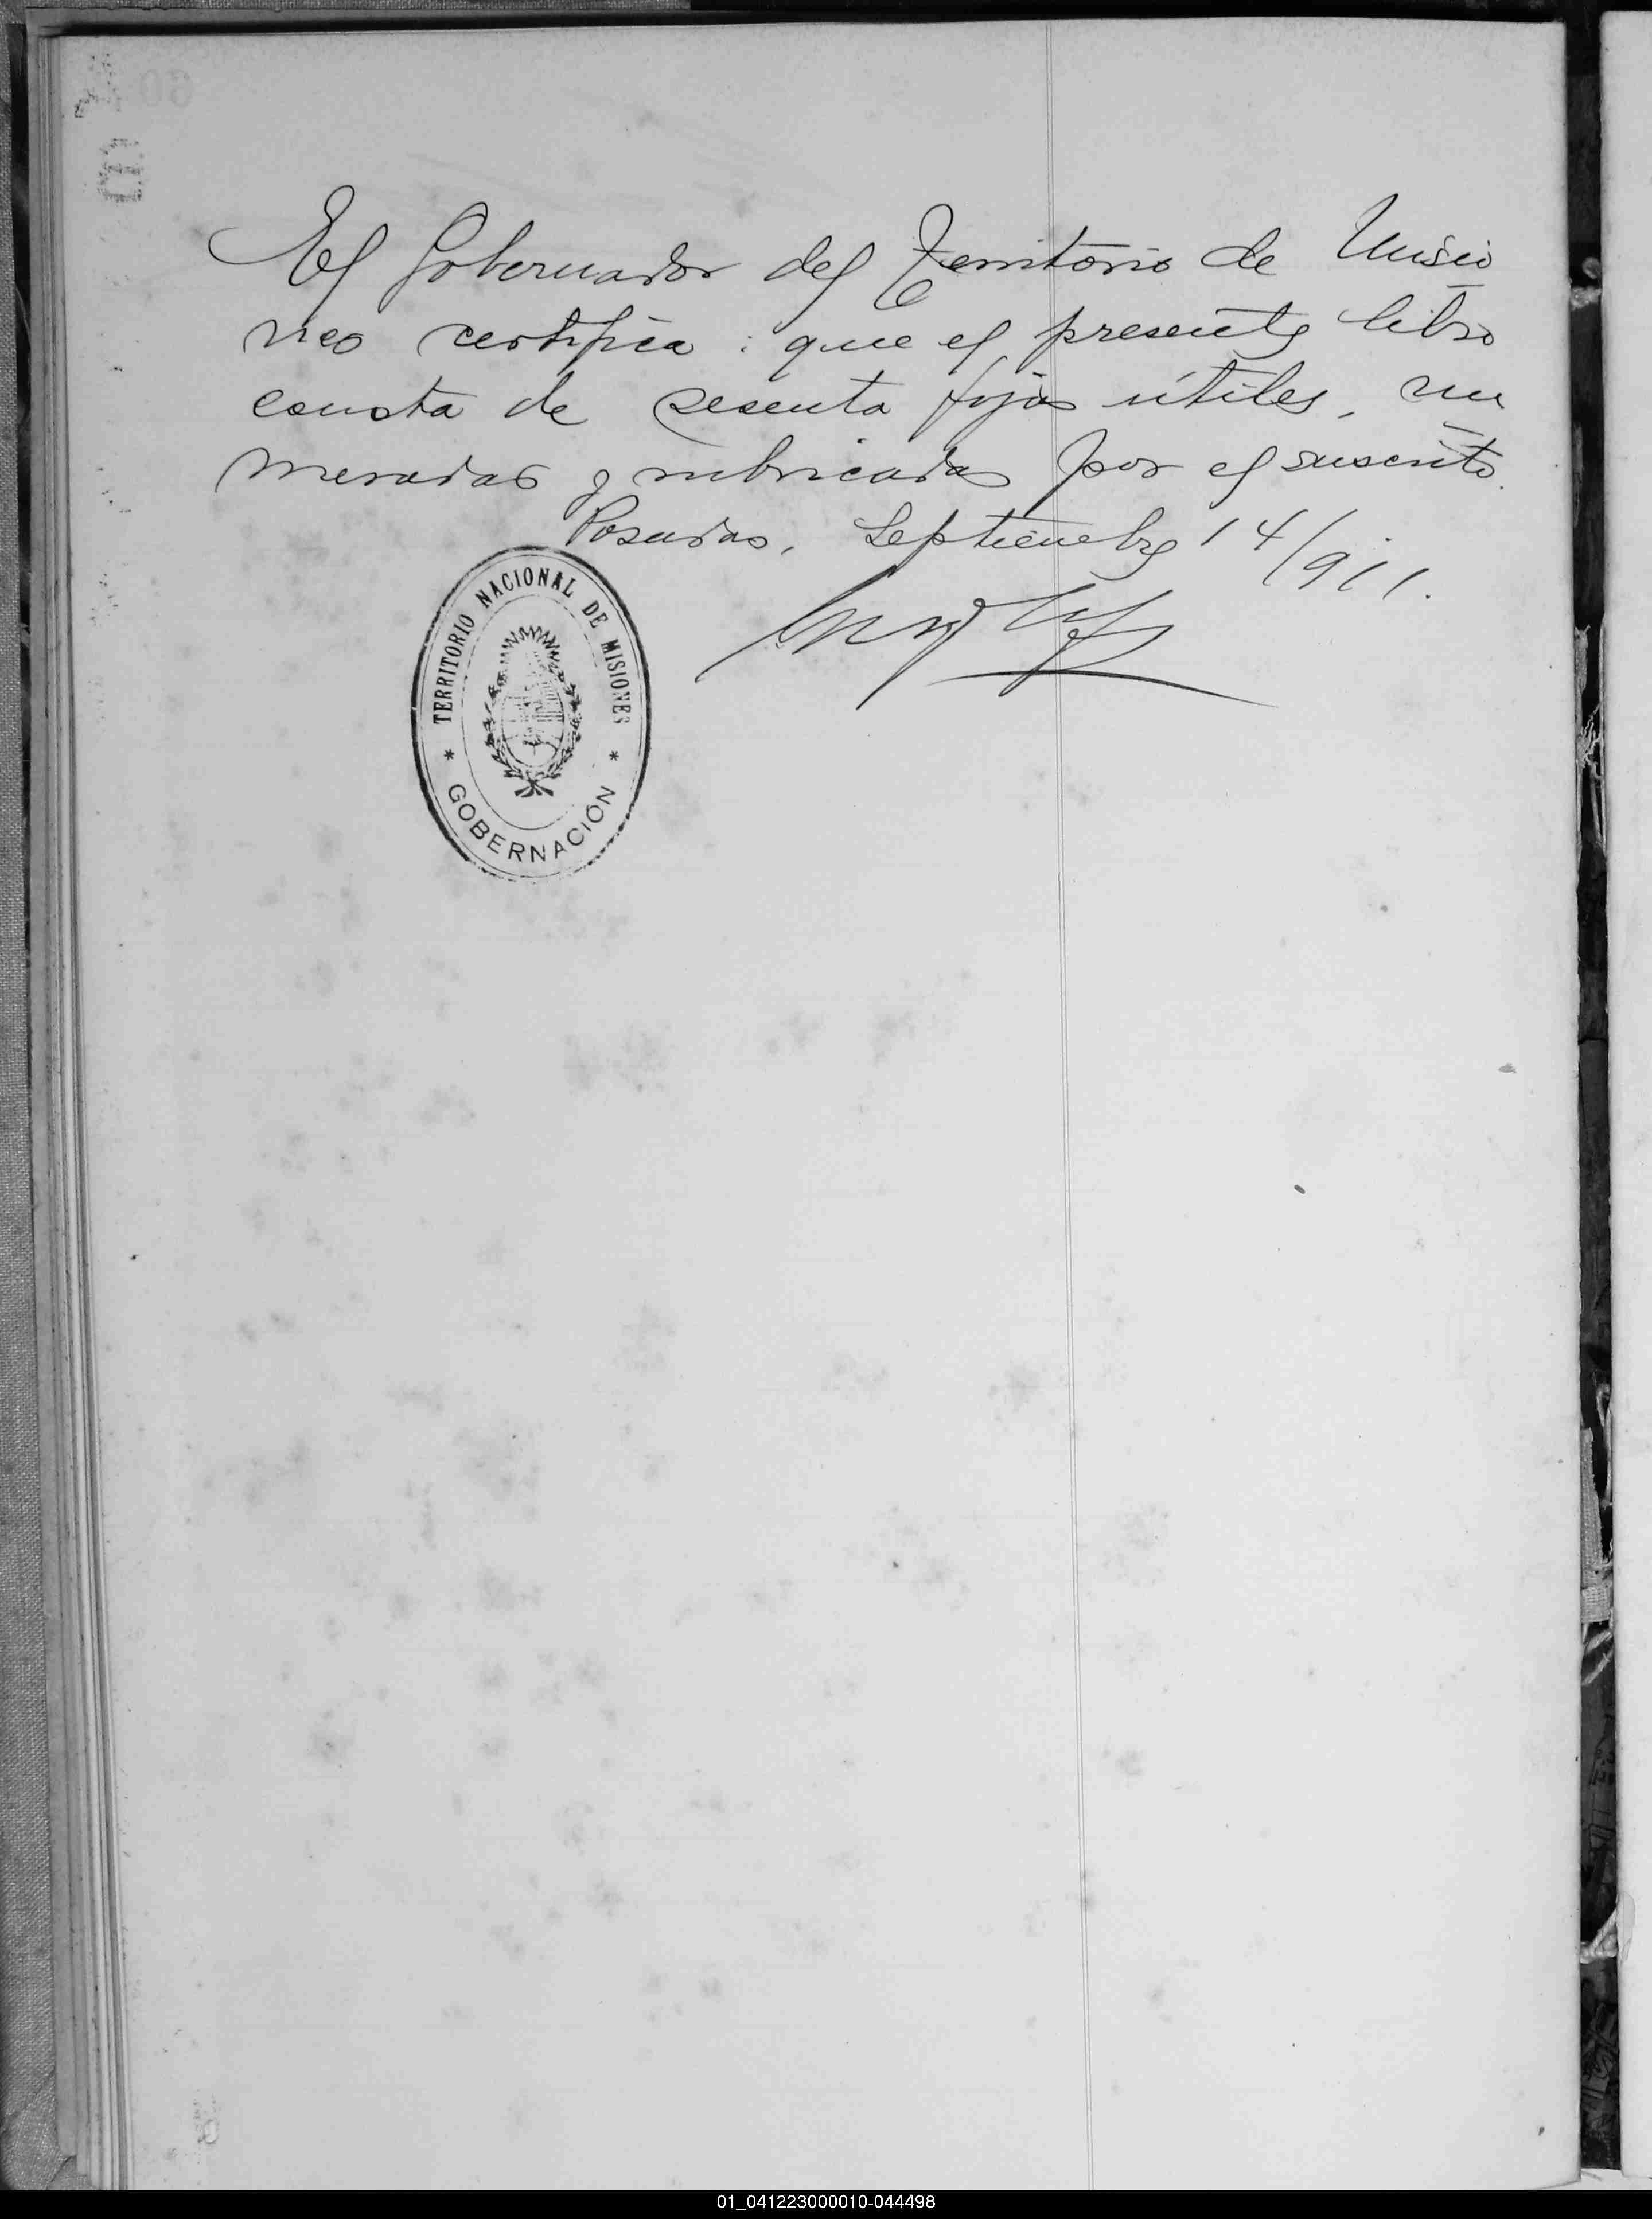 El Gobernador del Territorio de Misio
nes certifica: que el presente libro
consta de sesenta fojas útiles, nu
meradas y rubricadas por el suscrito.
Posadas, Septiembre 14/911.
TERRITORIO NACIONAL DE MISIONES
* GOBERNACIÓN *
01_041223000010-044498